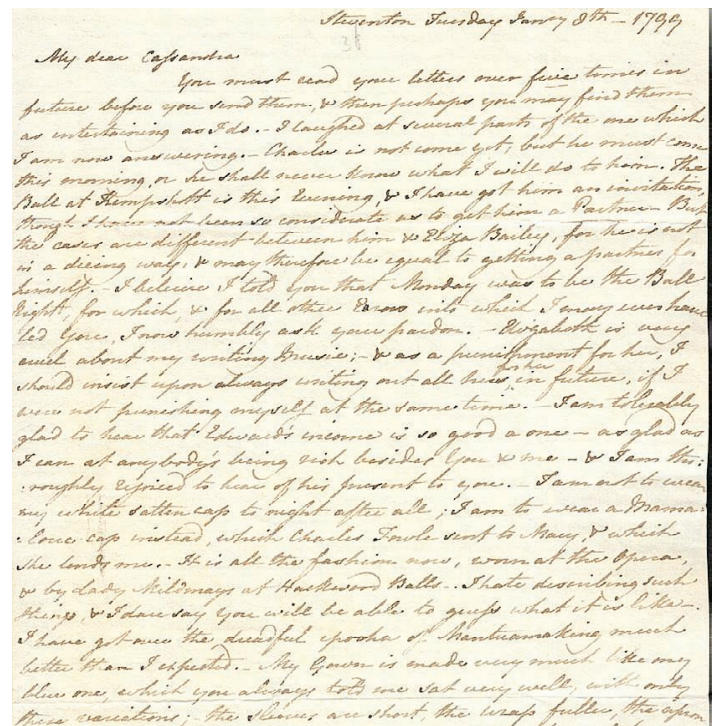 Steventon Tuesday Janry 8th - 1799
My dear Cassandra
You must read your letters over five times in
future before you send them, & then perhaps you may find them
as entertaining as I do. - I laughed at several parts of the one which
I am now answering. - Charles is not come yet, but he must come
this morning, or he shall never know what I will do to him. The
Ball at Kempshott is this Evening, & I have got him an invitation,
though I have not been so considerate as to get him a Partner. But
the cases are different between him & Eliza Bailey, for he is not
in a dieing way, & may therefore be equal to getting a partner for
himself. - I beleive I told you that Monday was to be the Ball
Night, for which, & for all other Errors into which I may ever have
led you, I now humbly ask your pardon. - Elizabeth is very
cruel about my writing Music; - & as a punishment for her, I
should insist upon always writing out all hers for her in future, if I
were not punishing myself at the same time. - I am tolerably
glad to hear that Edward's income is so good a one - as glad as
I can at anybody's being rich besides You & me - & I am tho:
:roughly rejoiced to hear of his present to you. - I am not to wear
my white sattin cap to night after all; I am to wear a Mama:
:louc cap instead, which Charles Fowle sent to Mary, & which
she lends me. - It is all the fashion now, worn at the Opera,
& by Lady Mildmays at Hackwood Balls - I hate describing such
things, & I dare say You will be able to guess what it is like -
I have got over the dreadful epocha of Mantuamaking much
better than I expected. - My Gown is made very much like my
blue one, which you always told me sat very well, with only
these variations; - the sleeves are short, the wrap fuller, the apron